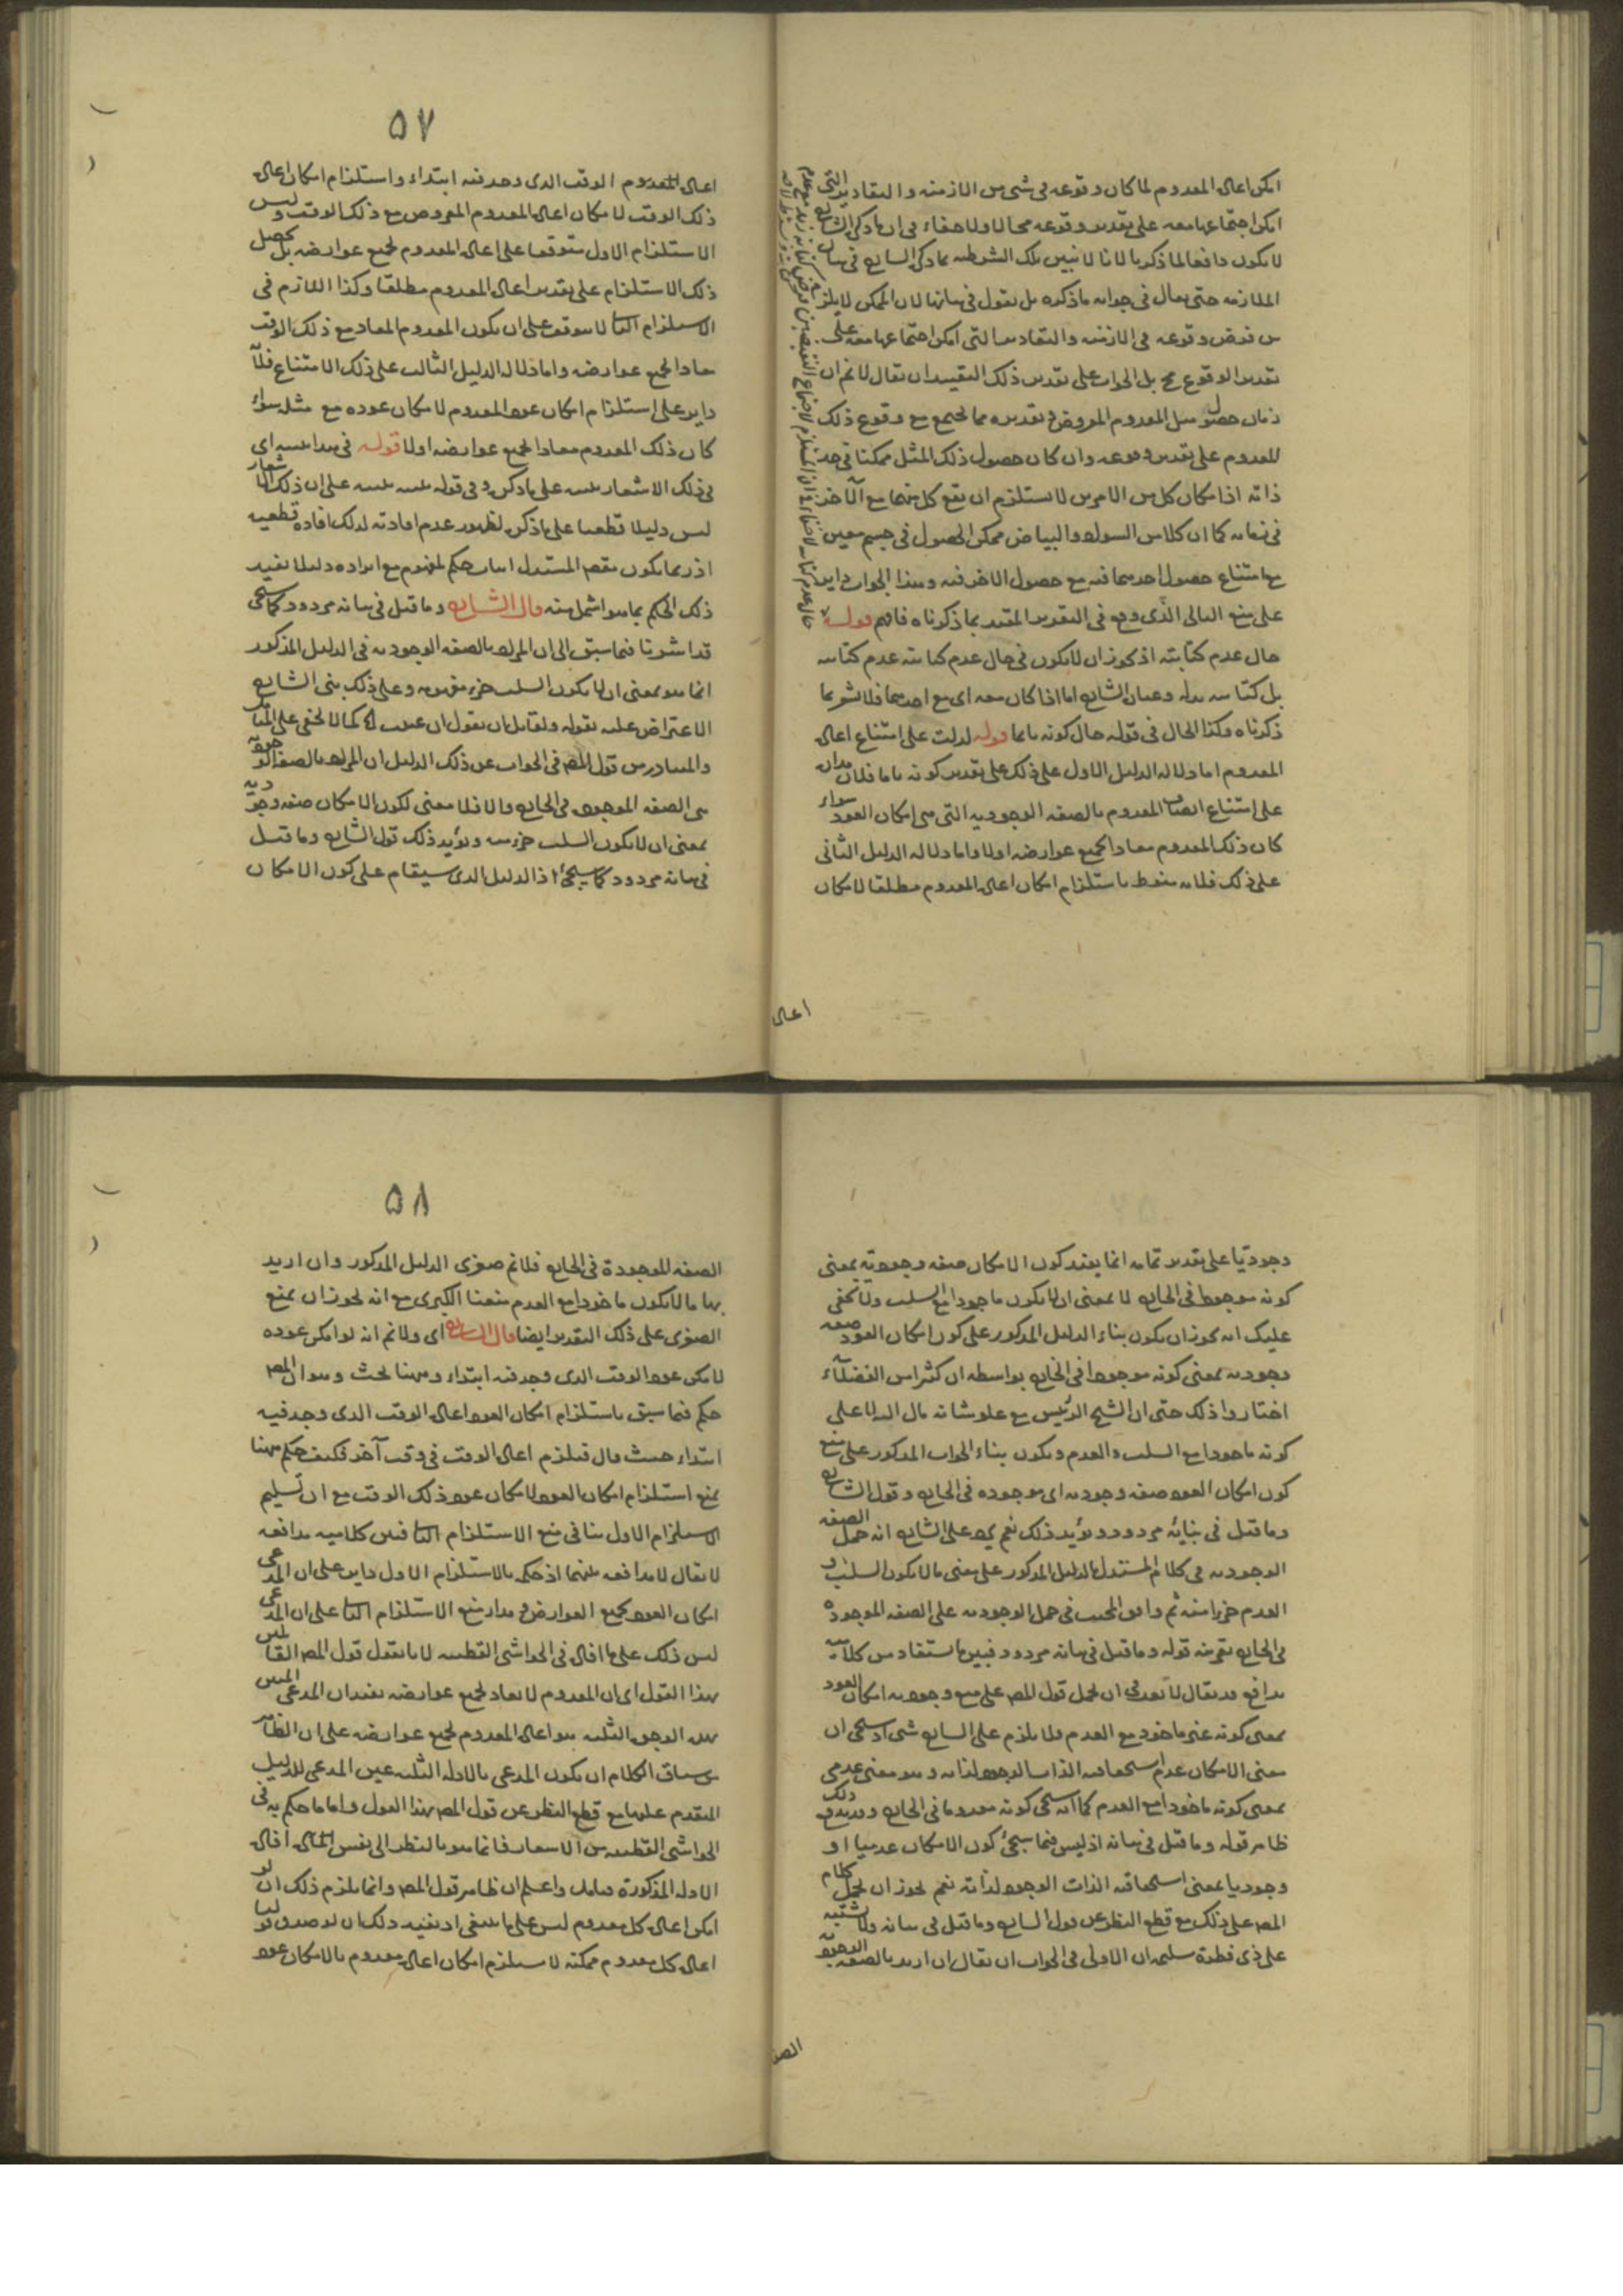 امكن اعاده المعدوم لما كان وقوعه فى شى من الازمنه والتقادير التى
امكن اجتماعها معه على تقدير وقوعه محالا ولا خفاء فى ان ما ذكره الشارح
لا يكون دافعا لما ذكرنا لانا لا نبين تلك الشرطيه بما ذكره الشارح فى بيان
الملازمه حتى يقال فى جوابه ما ذكره بل نقول فى بيانها لان الممكن لا يلزم
من فرض وقوعه فى الازمنه والتقادير التى امكن اجتماعها معه على
تقدير الوقوع مح بل الجواب على تقدير ذلك التقييد ان يقال لا نم ان
زمان حصول مثل المعدوم المفروض وتقديره مما يجتمع مع وقوع ذلك
المعدوم على تقدير وقوعه وان كان حصول ذلك المثل ممكنا فى حد
ذاته اذ امكان كل من الامرين لا يستلزم ان يقع كل منهما مع الآخر
فى زمانه كما ان كلا من السواد والبياض ممكن الحصول فى جسم معين
مع امتناع حصول احدهما فيه مع حصول الاخر فيه وهذا الجواب داير
على منع التالى الذى وقع فى التقرير المقيد بما ذكرناه فافهم قوله
حال عدم كتابته اذ يجوز ان لا يكون فى حال عدم كتابته عدم كتابته
بل كتابته بدله وعبارة الشارح اما اذا كان معه اى مع احدهما فلا شعر بما
ذكرناه وكذا الحال فى قوله حال كونه نائما قوله لدلت على امتناع اعاده
المعدوم اما دلاله الدليل الاول على ذلك على تقدير كونه تاما فلان مداره
على امتناع اتصاف المعدوم بالصفه الوجوديه التى هى امكان العود سواء
كان ذلك المعدوم معادا بجميع عوارضه اولا واما دلاله الدليل الثانى
على ذلك فلانه منوط باستلزام امكان اعاده المعدوم مطلقا لامكان
اعاده
٥٧
اعاده المعدوم الوقت الذى وجد فيه ابتداء واستلزام امكان اعاده
ذلك الوقت لامكان اعاده المعدوم المفروض مع ذلك الوقت وليس
الاستلزام الاول متوقفا على اعاده المعدوم بجميع عوارضه بل يحصل
ذلك الاستلزام على تقدير اعاده المعدوم مطلقا وكذا اللازم فى
الاستلزام الثانى لا يتوقف على ان يكون المعدوم المعاد مع ذلك الوقت
معادا بجميع عوارضه واما دلاله الدليل الثالث على ذلك الامتناع فلانه
داير على استلزام امكان عود المعدوم لامكان عوده مع مثله سواء
كان ذلك المعدوم معادا بجميع عوارضه اولا قوله فى هذا تنبيه اى
فى ذلك الاشعار تنبيه على ما ذكره وفى قوله تنبيه تنبيه على ان ذلك الاشعار
ليس دليلا قطعيا على ما ذكره لظهور عدم افادته لذلك افاده قطعيه
اذ ربما يكون مقصد المستدل اثبات حكم لمفهوم مع ايراده دليلا يفيد
ذلك الحكم بما هو اشمل منه قال الشارح وما قيل فى بيانه مردود كما سيجى
قد اشرنا فيما سبق الى ان المراد بالصفه الوجوديه فى الدليل المذكور
انما هو بمعنى ان لا يكون السلب جزء مفهومه وعلى ذلك بنى الشارح
الاعتراض عليه بقوله ولقائل ان يقول ان عنيت كما لا يخفى على المتامل
والمتبادر من قول المص فى الجواب عن ذلك الدليل ان المراد بالصفه الوجوديه
هى الصفه الموجوده فى الخارج والا فلا معنى لكون الامكان صفه وجوديه
بمعنى ان لا يكون السلب جزء منه ويؤيد ذلك قول الشارح وما قيل
فى بيانه مردود كما سيجئ اذ الدليل الذى سيقام على كون الامكان
وجوديا على تقدير تمامه انما يفيد كون الامكان صفه وجوديه بمعنى
كونه موجودا فى الخارج لا بمعنى ان لا يكون ماخوذا مع السلب ولا يخفى
عليك انه يجوز ان يكون بناء الدليل المذكور على كون امكان العود صفه
وجوديه بمعنى كونه موجودا فى الخارج بواسطه ان كثيرا من الفضلاء
اختاروا ذلك حتى ان الشيخ الرئيس مع علو شانه مال اليه لا على
كونه ماخوذا مع السلب والعدم ويكون بناء الجواب المذكور على منع
كون امكان العود صفه وجوديه اى موجوده فى الخارج وقول الشارح
وما قيل فى بيانه مردود ويؤيد ذلك نعم يرد على الشارح انه حمل الصفه
الوجوديه فى كلام المستدل بالدليل المذكور على معنى ما لا يكون السلب و
العدم جزءا منه ثم وافق المجيب فى حمل الوجوديه على الصفه الموجوده
فى الخارج بقرينه قوله وما قيل فى بيانه مردود فبين ما يستفاد من كلاميه
تدافع قد يقال لا بعد فى ان يحمل قول المص على منع وجوديه امكان العود
بمعنى كونه غير ماخوذ مع العدم ولا يلزم على الشارح شى اذ سيجى ان
معنى الامكان عدم استحقاقيه الذات الوجود لذاته وهو معنى عدمى
بمعنى كونه ماخوذا مع العدم كما انه سيجى كونه معدوما فى الخارج ويؤيد ذلك
ظاهر قوله وما قيل فى بيانه اذ ليس فيما سيجئ كون الامكان عدميا او
وجوديا بمعنى استحقاقيه الذات الوجود لذاته نعم يجوز ان يحمل كلام
المص على ذلك مع قطع النظر عن قول الشارح وما قيل فى بيانه ولا يشتبه
على ذى فطرة سليمه ان الاولى فى الجواب ان يقال ان اريد بالصفه الوجوديه
الصفه
٥٨
الصفه الموجودة فى الخارج فلا نم صغرى الدليل المذكور وان اريد
بها ما لا يكون ماخوذا مع العدم منعنا الكبرى مع انه يجوز ان يمنع
الصغرى على ذلك التقدير ايضا قال الشارح اى ولا نم انه لو امكن عوده
لامكن عود الوقت الذى وجد فيه ابتداء وههنا بحث وهو ان المص
حكم فيما سبق باستلزام امكان العود اعاده الوقت الذى وجد فيه
ابتداء حيث قال فيلزم اعاده الوقت فى وقت آخر فكيف حكم ههنا
بمنع استلزام امكان العود لامكان عود ذلك الوقت مع ان تسليم
الاستلزام الاول ينافى منع الاستلزام الثانى فبين كلاميه مدافعه
لا يقال لا مدافعه بينهما اذ حكمه بالاستلزام الاول داير على ان المدعى
امكان العود بجميع العوارض ومدار منع الاستلزام الثانى على ان المدعى
ليس ذلك على ما افاده فى الحواشى القطبيه لانا نقول قول المص القائل
بهذا القول اى ان المعدوم لا يعاد بجميع عوارضه يفيد ان المدعى المبين
بهذه الوجوه الثلثه هو اعاده المعدوم بجميع عوارضه على ان الظاهر
من سياق الكلام ان يكون المدعى بالادله الثلثه عين المدعى للدليل
المتقدم عليها مع قطع النظر عن قول المص بهذا القول واما ما حكم به فى
الحواشى القطبيه من الاشعار فانما هو بالنظر الى نفس افاده
الادله المذكورة فتامل واعلم ان ظاهر قول المص وانما يلزم ذلك ان لو
امكن اعاده كل معدوم ليس على ما ينبغى اذ يفيد ذلك ان لو صدق قولنا
اعاده كل معدوم ممكنه لاستلزم امكان اعاده معدوم بالامكان عود